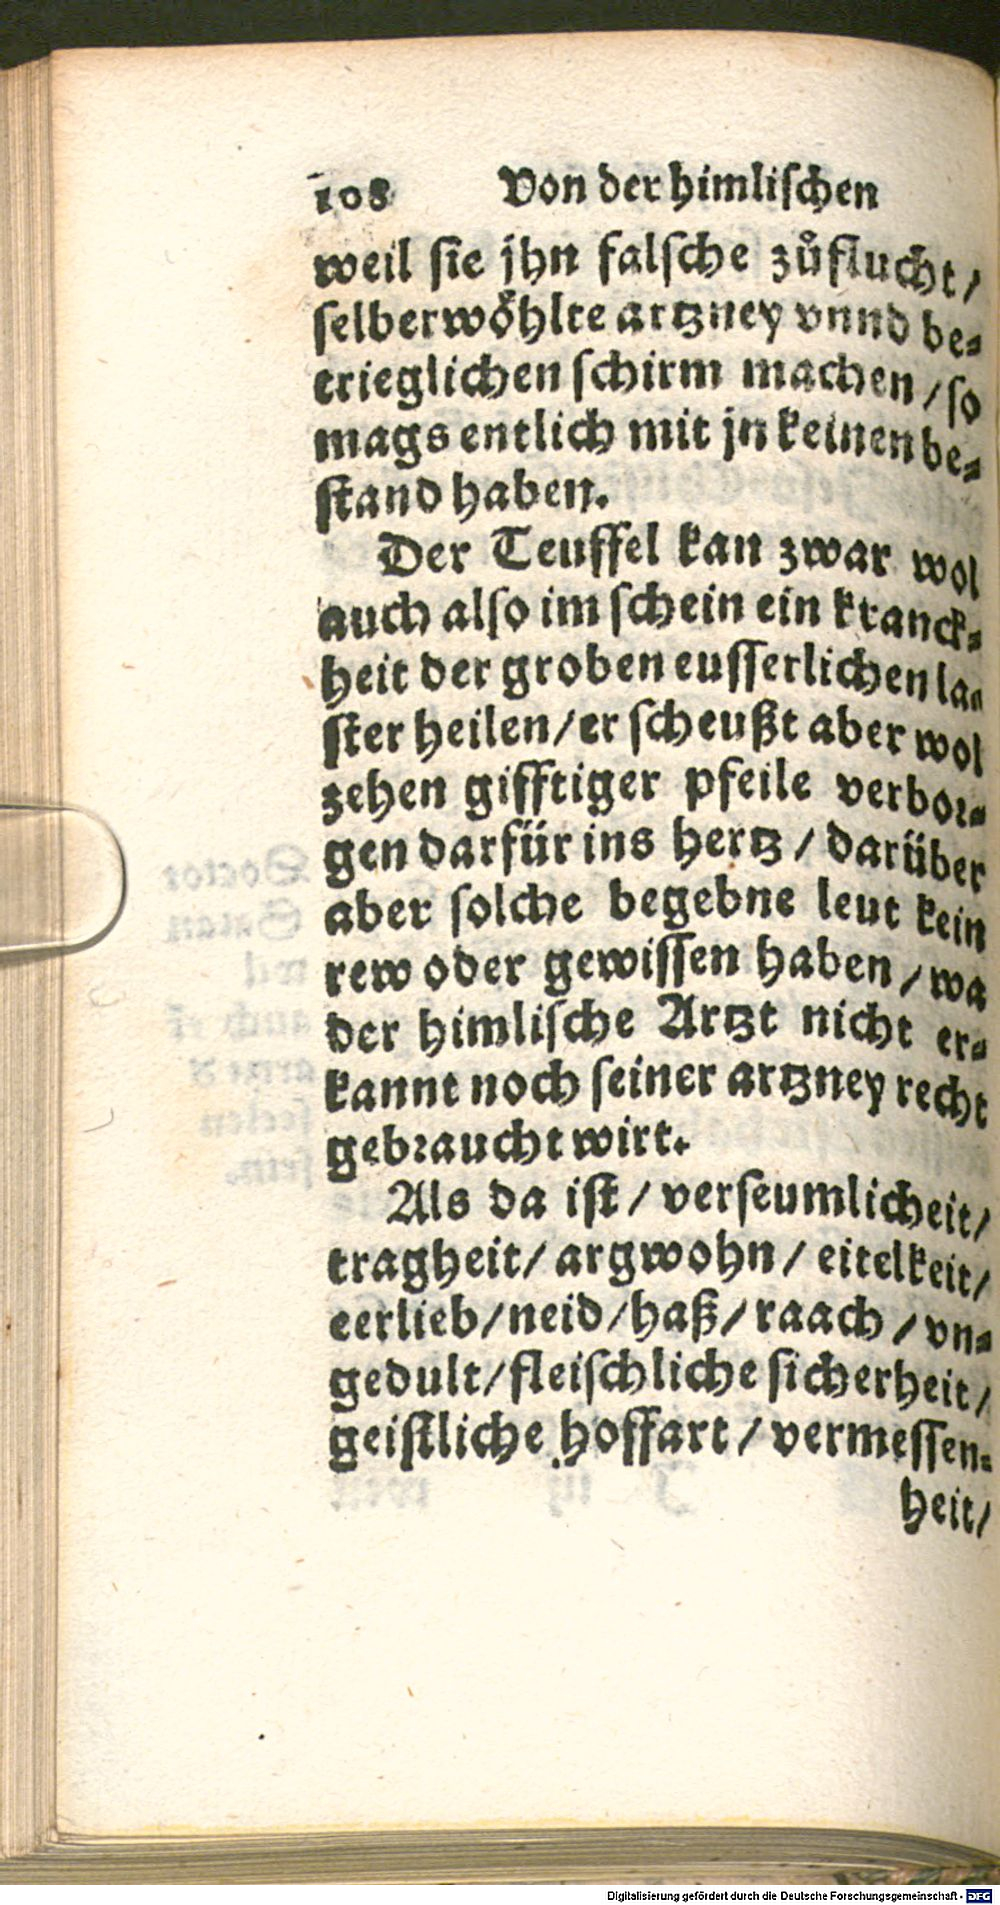 108 Von der himlischen
weil sie jhn falsche zůflucht /
selberwöhlte artzney vnnd be-
trieglichen schirm machen / so
mags entlich mit jn keinen be-
stand haben.
Der Teuffel kan zwar wol
auch also im schein ein kranck-
heit der groben eusserlichen la-
ster heilen / er scheußt aber wol
zehen gifftiger pfeile verbor-
gen darfür ins hertz / darüber
aber solche begebne leut kein
rew oder gewissen haben / wa
der himlische Artzt nicht er-
kannt noch seiner artzney recht
gebraucht wirt.
Als da ist / verseumlicheit /
tragheit / argwohn / eitelkeit /
eerlieb / neid / haß / raach / vn-
gedult / fleischliche sicherheit /
geistliche hoffart / vermessen-
heit /
Digitalisierung gefördert durch die Deutsche Forschungsgemeinschaft - DFG